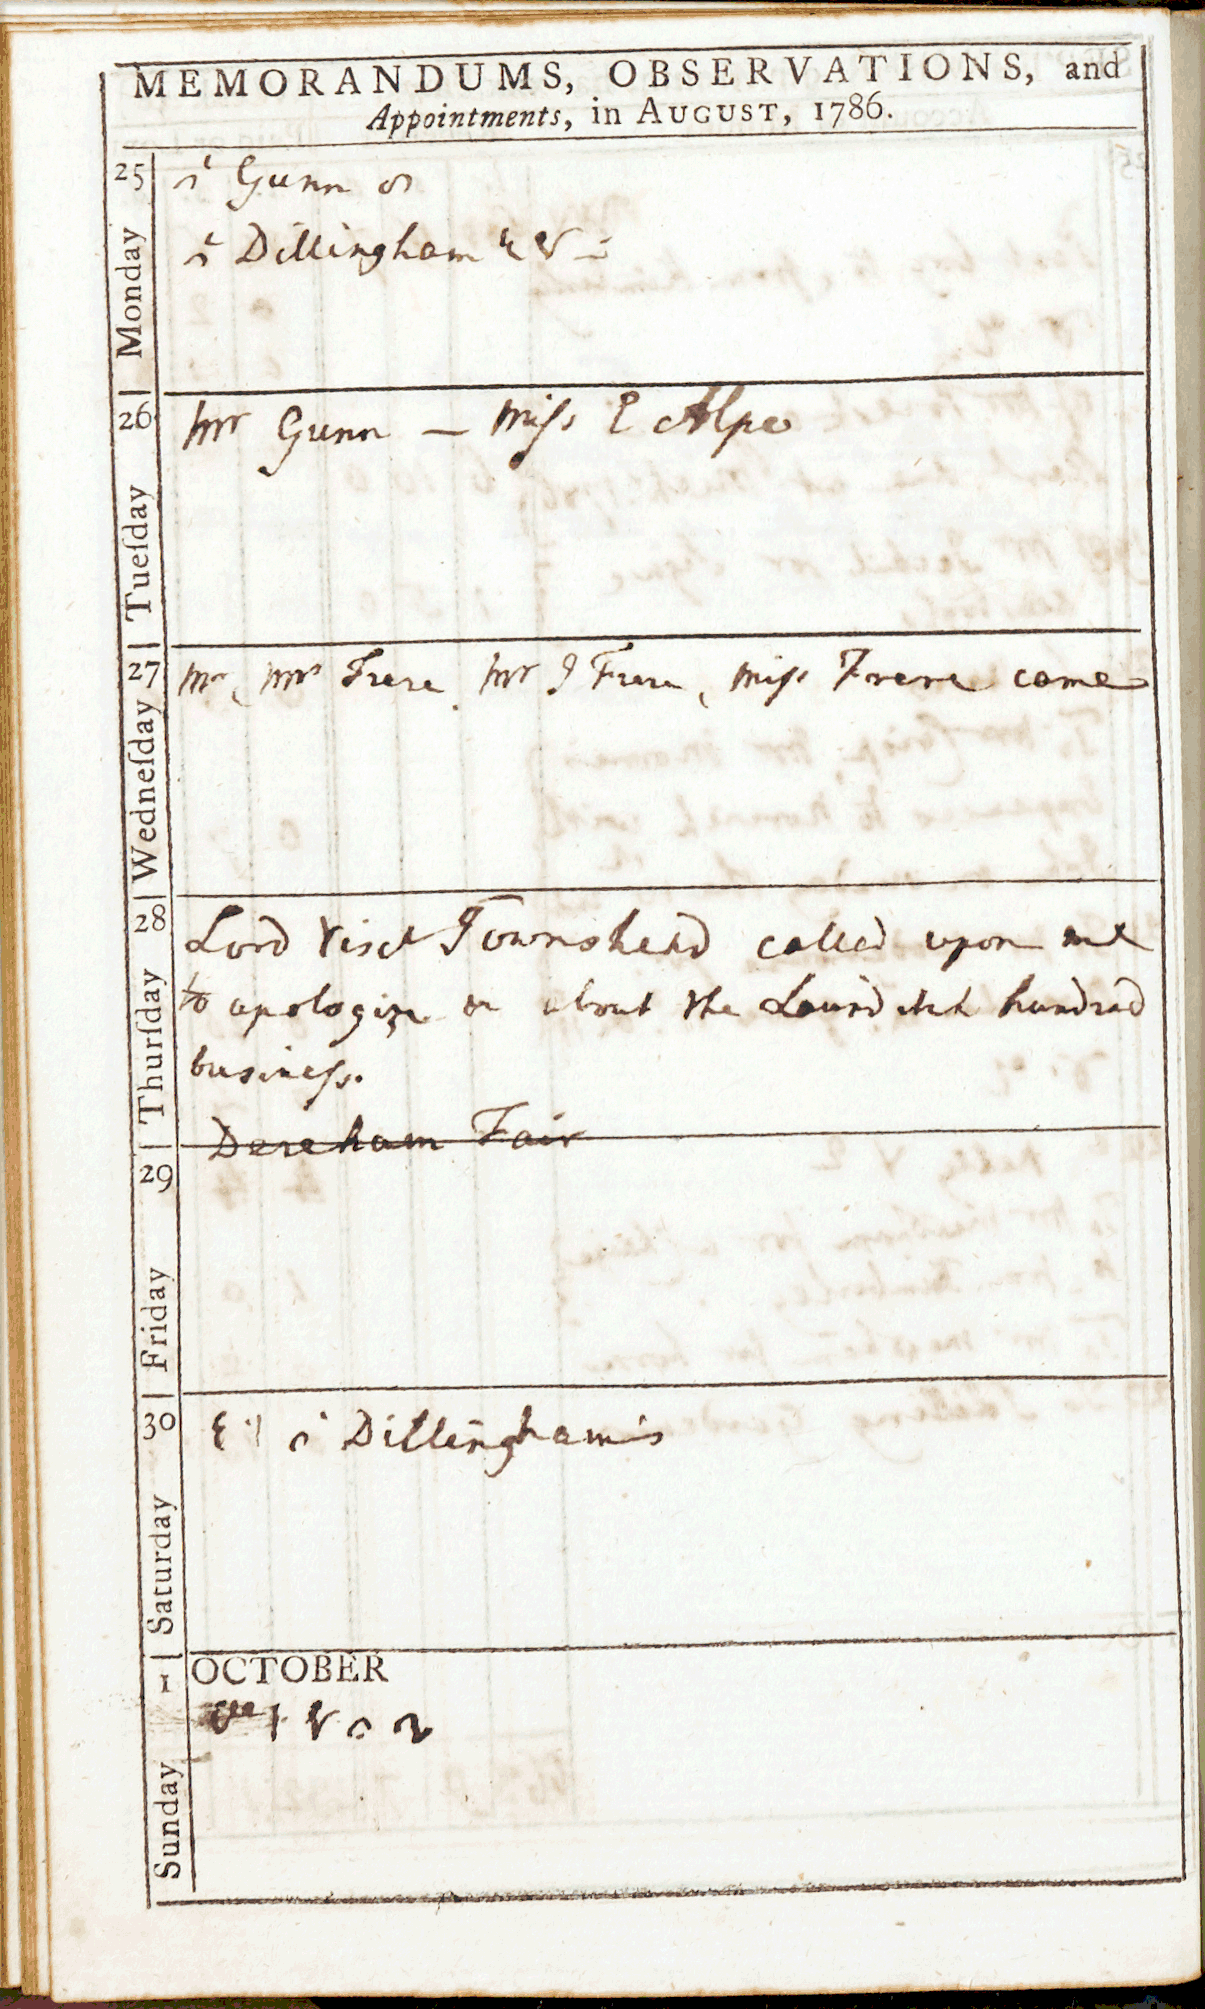 MEMORANDUMS, OBSERVATIONS, and
Appointments, in AUGUST, 1786.
25 Monday
Gunn
Dillingham
26 Tueſday
Mr Gunn — Miſs E Alpe
27 Wedneſday
Mr, Mrs Frere, Mr J Frere, Miſs Frere came
28 Thurſday
Lord Visct Townshend called upon me
to apologize about the Launditch hundred
buſineſs.
Dereham Fair
29 Friday
30 Saturday
Dillingham's
1 Sunday
OCTOBER